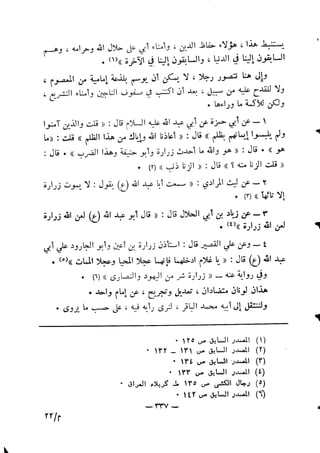 يستنبط هذا ، هؤلاء حفاظ الدين ، وأمناء أبي على حلال الله وحرامه ، وهم
السابقون إلينا في الدنيا ، والسابقون إلينا في الآخرة » (١) .
وإلى هنا نتصور رجلا ، لا يمكن أن يوسم بلمعة إمامية من المعصوم ،
ولا للقدح عليه من سبيل ، بعد أن اكتسب في صفوف الناجين وأمناء التشريع ،
ولكن للأكمة ما وراءها .
١ – عن أبي حمزة عن أبي عبد الله عليه السلام قال : « قلت والذين آمنوا
ولم يلبسوا إيمانهم بظلم » قال : « أعاذنا الله وإياك من هذا الظلم » قلت : « ما
هو » قال : « هو والله ما أحدث زرارة وأبو حنيفة وهذا الضرب » : قال :
« قلت الزنا منه ؟ » قال : « الزنا ذنب » (٢) .
٢ – عن ليث المرادي : « سمعت أبا عبد الله (ع) يقول : لا يموت زرارة
إلا تائها » (٣) .
٣ – عن زياد بن أبي الحلال قال : « قال أبو عبد الله (ع) لعن الله زرارة
لعن الله زرارة » (٤) .
٤ – وعن علي القصير قال : استأذن زرارة بن أعين وأبو الجارود على أبي
عبد الله (ع) قال : « يا غلام ادخلهما فإنهما عجلا المحيا وعجلا الممات » (٥) .
وفي رواية عنه – « زرارة شر من اليهود والنصارى » (٦) .
هذان لونان متضادان ، تعديل وتجريح ، عن إمام واحد .
ولننتقل إلى أبيه محمد الباقر ، لنرى رأيه فيه ، على حسب ما يروى .
(١) المصدر السابق ص ١٢٥ .
(٢) المصدر السابق ص ١٣١ – ١٣٢ .
(٣) المصدر السابق ص ١٣٤ .
(٤) المصدر السابق ص ١٣٣ .
(٥) رجال الكشي ص ١٣٥ ط كربلاء العراق .
(٦) المصدر السابق ص ١٤٢ .
– ٣٣٧ –
م/٢٢